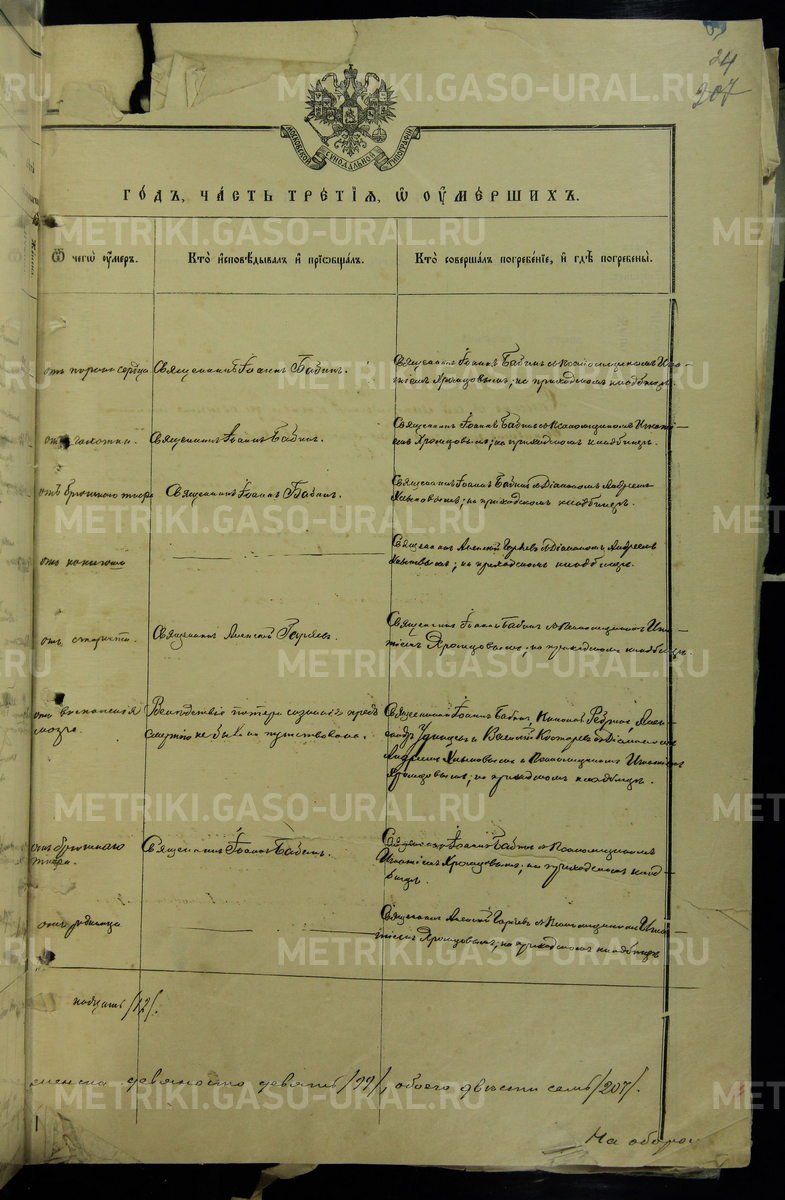 24
207
МОСКОВСКОЙ СѴНОДАЛЬНОЙ ТИПОГРАФІИ
ГО́ДЪ, ЧА́СТЬ ТРЕ́ТІЯ, Ѡ҆ ОУ҆МЕ́РШИХЪ.
Ѿ чегѡ̀ оу҆́меръ.
Кто̀ и҆сповѣ́дывалъ и҆ прїѡбща́лъ.
Кто̀ соверша́лъ погребе́нїе, и҆ гдѣ̀ погребены̀.
отъ порока сердца
Священникъ Іоаннъ Бабинъ.
Священникъ Іоаннъ Бабинъ съ псаломщикомъ Игна-
тіемъ Хромцовымъ; на приходскомъ кладбищѣ.
отъ чахотки.
Священникъ Іоаннъ Бабинъ.
Священникъ Іоаннъ Бабинъ съ псаломщикомъ Игнаті-
емъ Хромцовымъ; на приходскомъ кладбищѣ.
отъ брюшного тифа
Священникъ Іоаннъ Бабинъ.
Священникъ Іоаннъ Бабинъ съ Діакономъ Андреемъ
на приходскомъ кладбищѣ.
отъ
Священникъ Алексѣй съ Діакономъ Андреемъ
на приходскомъ кладбищѣ.
отъ старости.
Священникъ Алексѣй
Священникъ Іоаннъ Бабинъ съ псаломщикомъ Игна-
тіемъ Хромцовымъ; на приходскомъ кладбищѣ.
отъ воспаленія
мозга.
Вслѣдствіе потери сознанія предъ
смертію не былъ напутствованъ.
Священники Іоаннъ Бабинъ, Алек-
сандръ Удинцевъ и Василій съ Діакономъ
Андреемъ и псаломщикомъ Игнатіемъ
Хромцовымъ; на приходскомъ кладбищѣ.
отъ брюшного
тифа.
Священникъ Іоаннъ Бабинъ.
Священникъ Іоаннъ Бабинъ съ псаломщикомъ
Игнатіемъ Хромцовымъ; на приходскомъ клад-
бищѣ.
отъ родимца
Священникъ Алексѣй съ псаломщикомъ Игна-
тіемъ Хромцовымъ; на приходскомъ кладбищѣ
надцать /12/.
женска девяносто девять /99/, обоего двѣсти семь /207/.
На оборо
METRIKI.GASO-URAL.RU